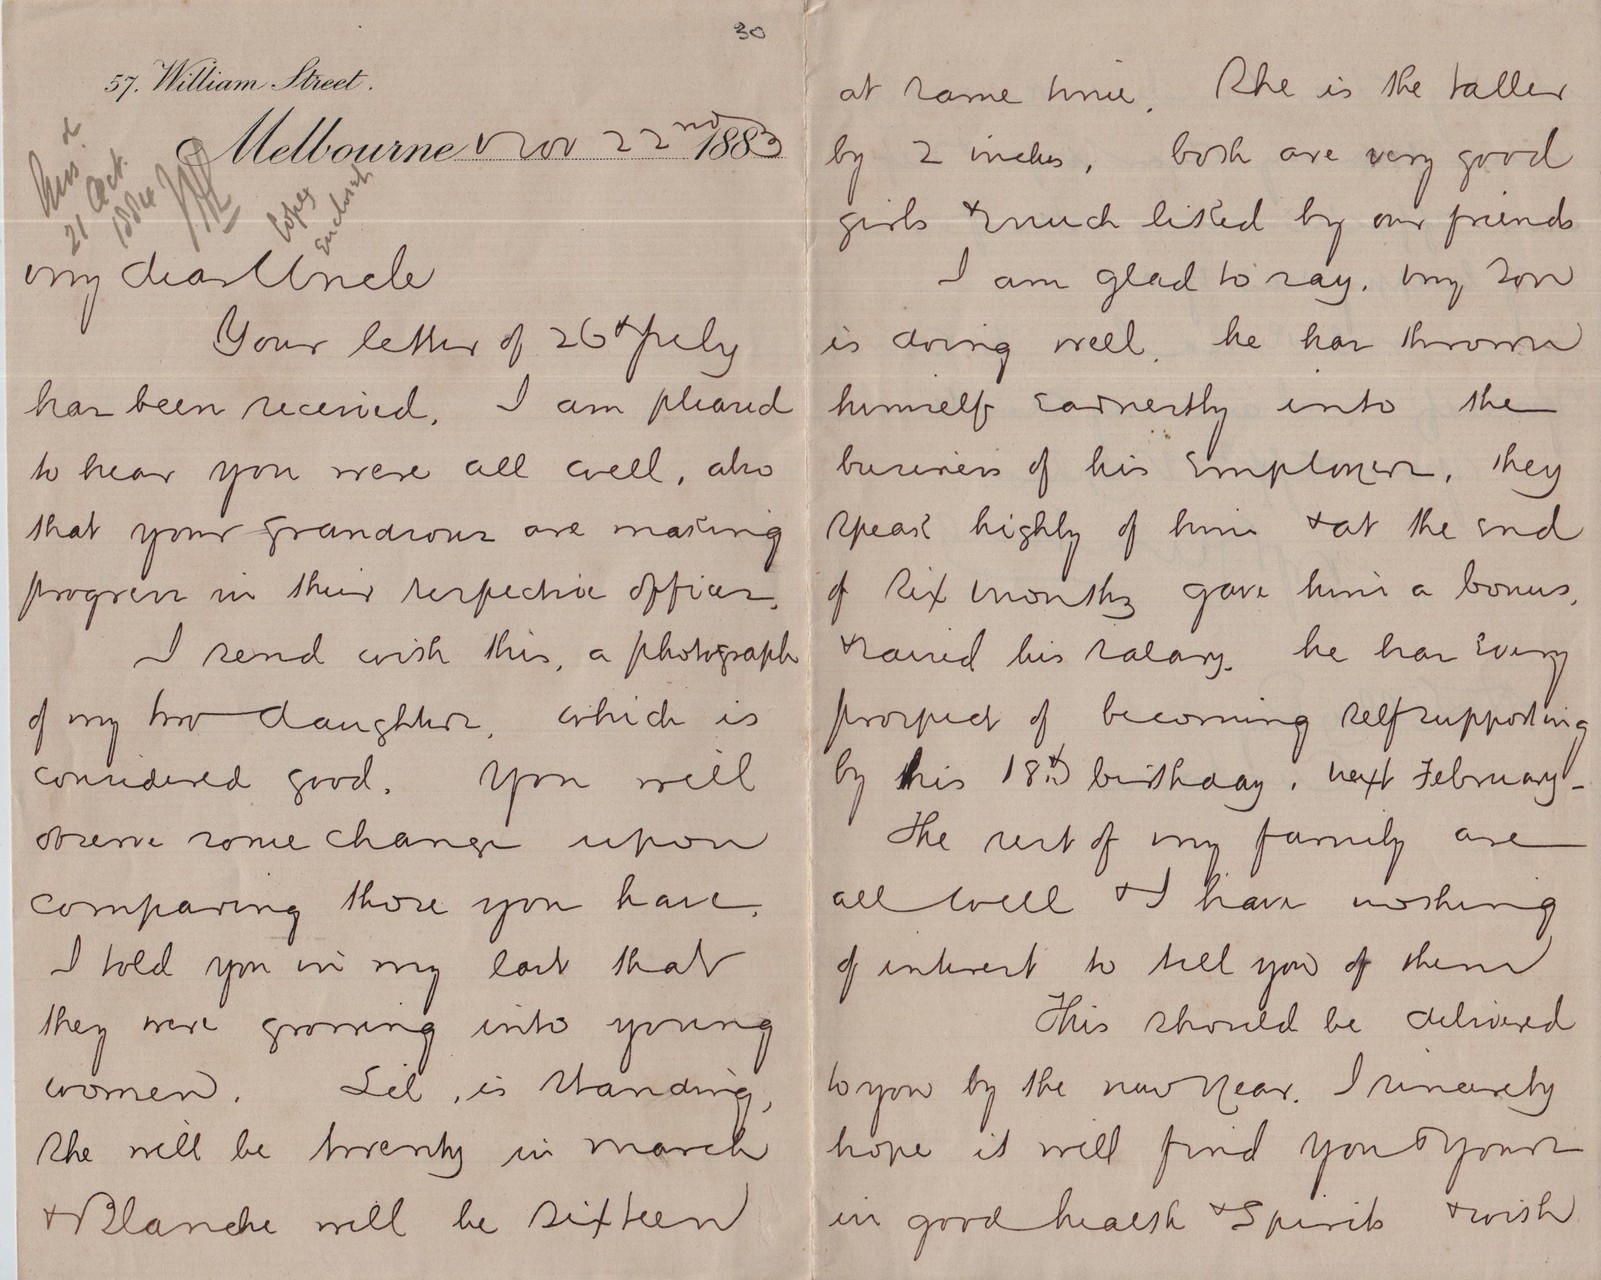 30
57. William Street.
Melbourne Nov 22nd 1883
Ans. d
21 Oct.
1884
Copy
Enclosed
My dear Uncle
Your letter of 26th July
has been received. I am pleased
to hear you were all well, also
that your grandsons are making
progress in their respective offices.
I send with this, a photograph
of my two daughters, which is
considered good. You will
observe some change upon
comparing those you have.
I told you in my last that
they were growing into young
women. Lil, is standing,
she will be twenty in March
& Blanche will be sixteen
at same time. She is the taller
by 2 inches, both are very good
girls & much liked by our friends
I am glad to say, my son
is doing well. he has thrown
himself earnestly into the
business of his employers, they
speak highly of him & at the end
of six months gave him a bonus,
& raised his salary. he has every
prospect of becoming self supporting
by his 18th birthday, next February-
The rest of my family are
all well & I have nothing
of interest to tell you of them
This should be delivered
to you by the new Year. I sincerely
hope it will find you & yours
in good health & spirits & wish